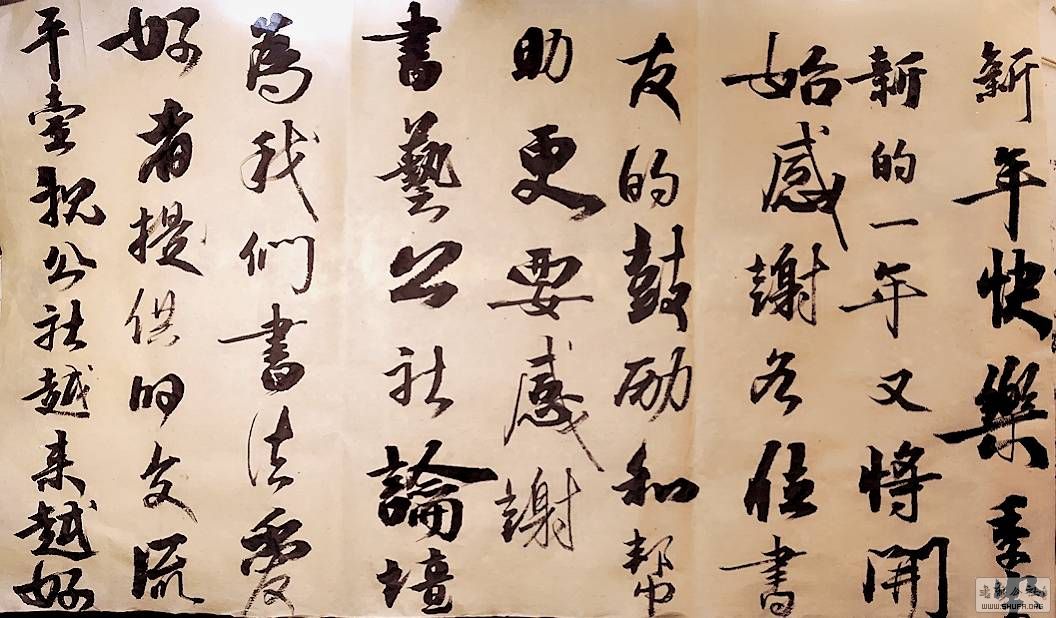 新年快樂
新的一年又將開
始感謝各位書
友的鼓励和幫
助更要感謝
書藝公社論壇
為我們書法愛
好者提供的交流
平臺祝公社越来越好
WWW.SHUFA.ORG